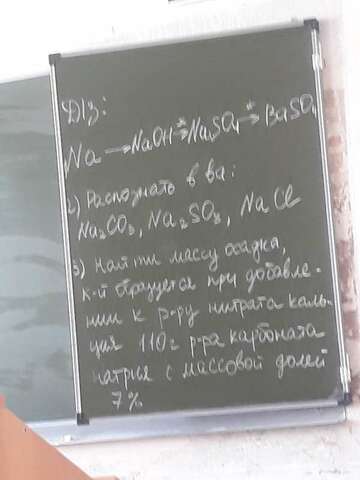 D/з:
Na → NaOH →* Na₂SO₄ →* BaSO₄
2) Распознать в ва:
Na₂CO₃, Na₂SO₃, NaCl
3) Найти массу осадка,
к-й образуется при добавле-
нии к р-ру нитрата каль-
ция 110 г р-ра карбоната
натрия с массовой долей
7%